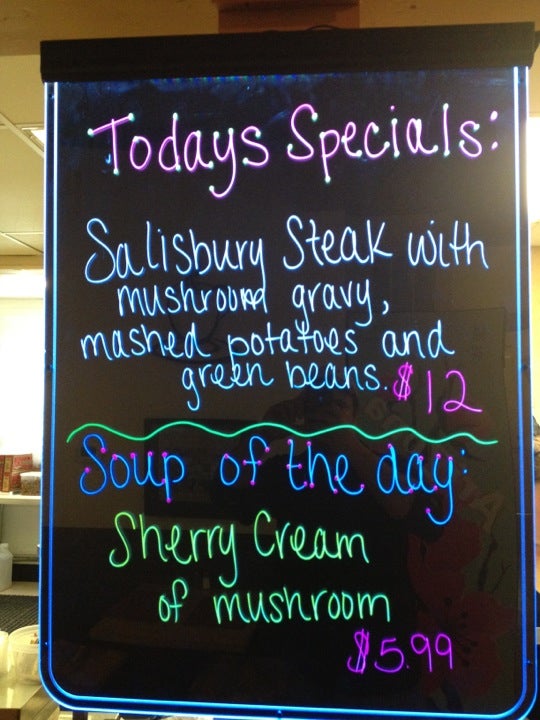 Todays Specials:
Salisbury Steak with
mushroom gravy,
mashed potatoes and
green beans. $12
Soup of the day:
Sherry Cream
of mushroom
$5.99